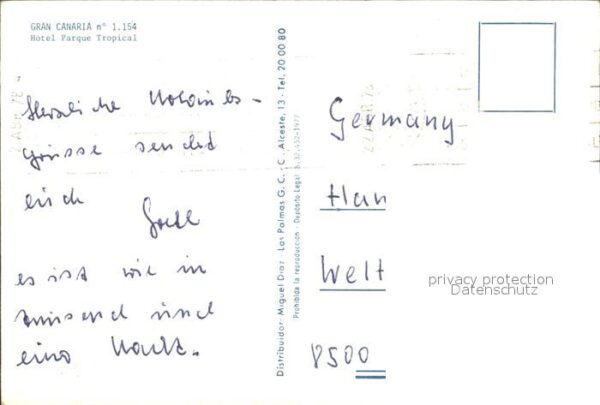 GRAN CANARIA nº 1.154
Hotel Parque Tropical
Herzliche
Grüsse sendet
euch
es ist wie in
tausend und
eine Nacht.
Distribuidor: Miguel Diaz - Las Palmas G. C. - C. Alceste, 13 - Tel. 20 00 80
Prohibida la reproducción - Depósito Legal
Germany
Welt
8500
privacy protection
Datenschutz